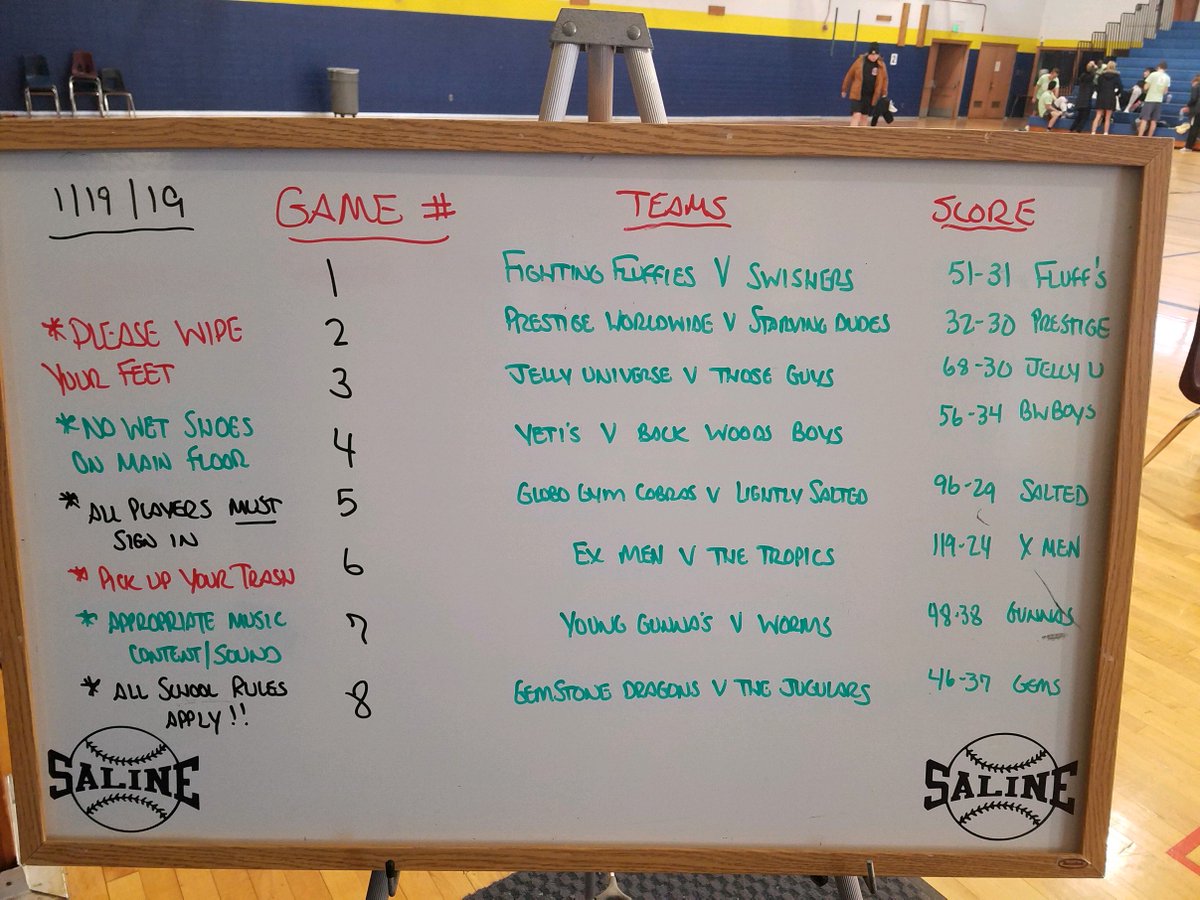 1/19/19 GAME # TEAMS SCORE
1 FIGHTING FLUFFIES V SWISHERS 51-31 FLUFF'S
*PLEASE WIPE
YOUR FEET
2 PRESTIGE WORLDWIDE V STARVING DUDES 32-30 PRESTIGE
3 JELLY UNIVERSE V THOSE GUYS 68-30 JELLY U
*NO WET SHOES
ON MAIN FLOOR
4 YETI'S V BACK WOODS BOYS 56-34 BW BOYS
* ALL PLAYERS MUST
SIGN IN
5 GLOBO GYM COBRAS V LIGHTLY SALTED 96-29 SALTED
* PICK UP YOUR TRASH
6 EX MEN V THE TROPICS 119-24 X MEN
* APPROPRIATE MUSIC
CONTENT/SOUND
7 YOUNG GUNNA'S V WORMS 48-38 GUNNAS
* ALL SCHOOL RULES
APPLY!!
8 GEMSTONE DRAGONS V THE JUGULARS 46-37 GEMS
SALINE
SALINE